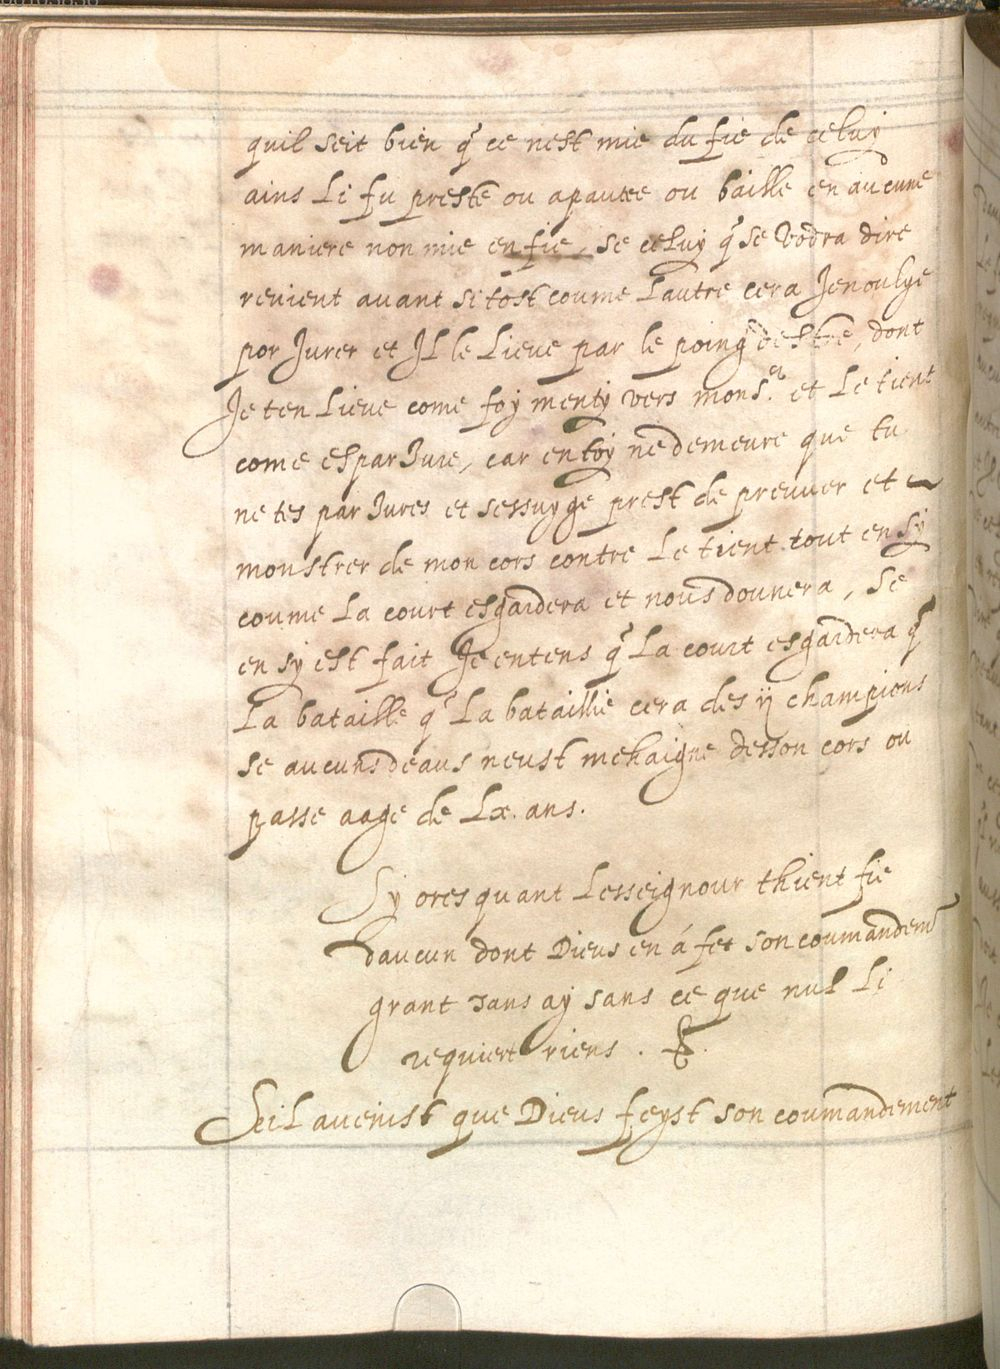 quil seit bien q̃ ce nest mie du fie de celuy
ains Li fu preste ou apautee ou baille en aucune
maniere non mie en fie, se celuy q̃ se vodra dire
revient avant si tost coume Lautre cera Jenoulye
por Jurer et JL le Lieve par le poing destre, dont
Je ten Lieve come foy menty vers mons.er et Le tient
come esparJure, car en toy ne demeure que tu
ne tes parJures et sessuyge prest de preuver et ~
monstrer de mon cors contre Le tient tout ensy
coume La court esgardera et nous dounera, Se
en sy est fait Je entens q̃ La court esgardera q̃
La bataille q̃ La bataillie cera des ij champions
se aucuns deaus neust mehaigne desson cors ou
passe aage de Lx. ans.
Sy ores quant Lesseignour thient fie
daucun dont Dieus en á fet son coumandemt
grant tans ay sans ce que nul Li
requiert riens.
Seil avenist que Dieus feyst son coumandement